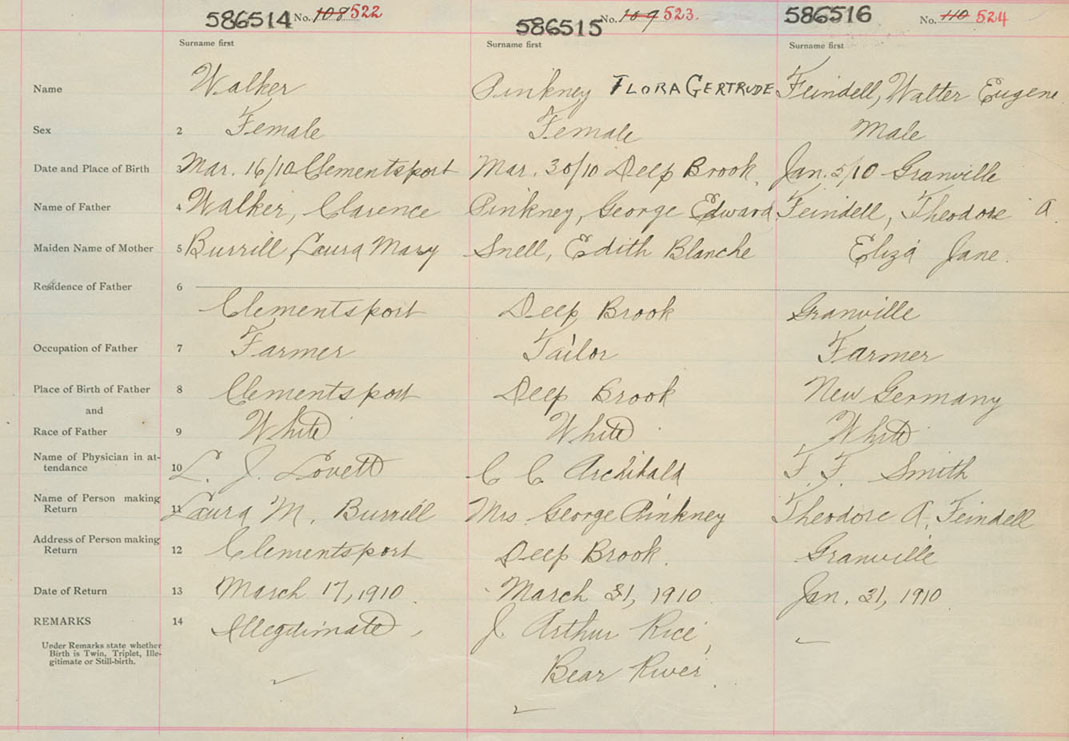 586514 No. 108 522 586515 No. 109 523. 586516 No. 110 524
Surname first Surname first Surname first
Name Walker Pinkney FLORA GERTRUDE Feindell, Walter Eugene
Sex 2 Female Female Male
Date and Place of Birth 3 Mar. 16/10 Clementsport Mar. 30/10 Deep Brook. Jan. 5/10 Granville
Name of Father 4 Walker, Clarence Pinkney, George Edward Feindell, Theodore A.
Maiden Name of Mother 5 Burrill Laura Mary Snell, Edith Blanche Eliza Jane.
Residence of Father 6
Clementsport Deep Brook Granville
Occupation of Father 7 Farmer Tailor Farmer
Place of Birth of Father 8 Clementsport Deep Brook New Germany
and
Race of Father 9 White White White
Name of Physician in at-
tendance 10 L. J. Lovett C C Archibald F. F. Smith
Name of Person making
Return 11 Laura M. Burrill Mrs George Pinkney Theodore A. Feindell
Address of Person making
Return 12 Clementsport Deep Brook. Granville
Date of Return 13 March 17, 1910 March 31, 1910 Jan. 31, 1910
REMARKS 14 Illegitimate J. Arthur Rice
Under Remarks state whether
Birth is Twin, Triplet, Ille-
gitimate or Still-birth.
Bear River